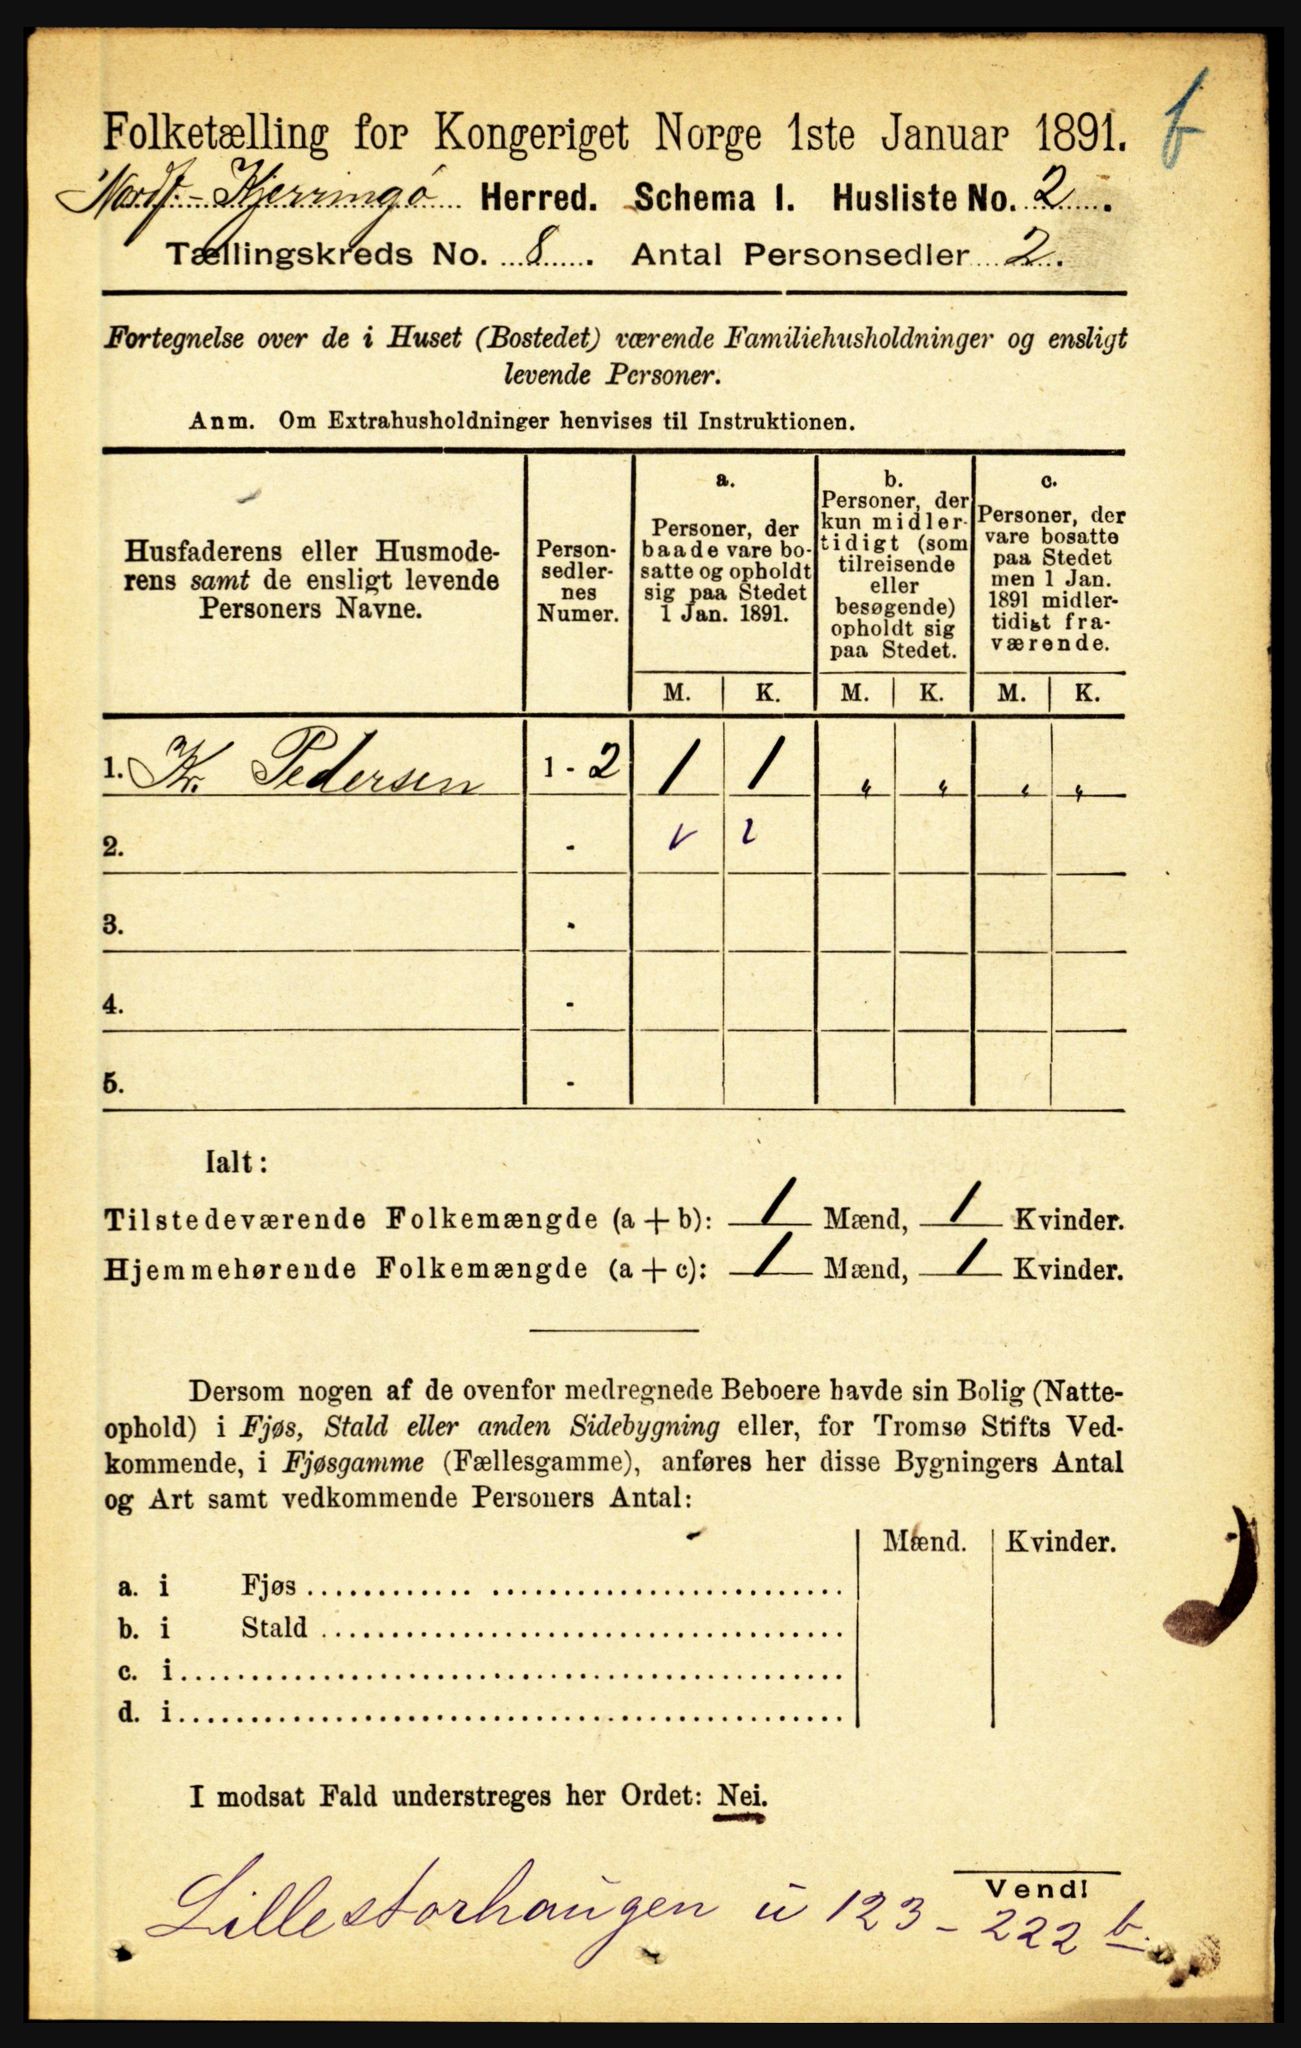 b
Folketælling for Kongeriget Norge 1ste Januar 1891.
Nordf.-Kjerringø Herred. Schema I. Husliste No. 2.
Tællingskreds No. 8. Antal Personsedler 2.
Fortegnelse over de i Huset (Bostedet) værende Familiehusholdninger og ensligt
levende Personer.
Anm. Om Extrahusholdninger henvises til Instruktionen.
Husfaderens eller Husmode-
rens samt de ensligt levende
Personers Navne.
Person-
sedler-
nes
Numer.
a.
Personer, der
baade vare bo-
satte og opholdt
sig paa Stedet
1 Jan. 1891.
b.
Personer, der
kun midler-
tidigt (som
tilreisende
eller
besøgende)
opholdt sig
paa Stedet.
c.
Personer, der
vare bosatte
paa Stedet
men 1 Jan.
1891 midler-
tidigt fra-
værende.
M. K. M. K. M. K.
1. Kr. Pedersen 1 - 2 1 1 " " " "
2. -
3. -
4. -
5. -
Ialt:
Tilstedeværende Folkemængde (a + b): 1 Mænd, 1 Kvinder.
Hjemmehørende Folkemængde (a + c): 1 Mænd, 1 Kvinder.
Dersom nogen af de ovenfor medregnede Beboere havde sin Bolig (Natte-
ophold) i Fjøs, Stald eller anden Sidebygning eller, for Tromsø Stifts Ved-
kommende, i Fjøsgamme (Fællesgamme), anføres her disse Bygningers Antal
og Art samt vedkommende Personers Antal:
Mænd. Kvinder.
a. i Fjøs
b. i Stald
c. i
d. i
I modsat Fald understreges her Ordet: Nei.
Vend!
Lillestorhaugen u 123 - 222 b.